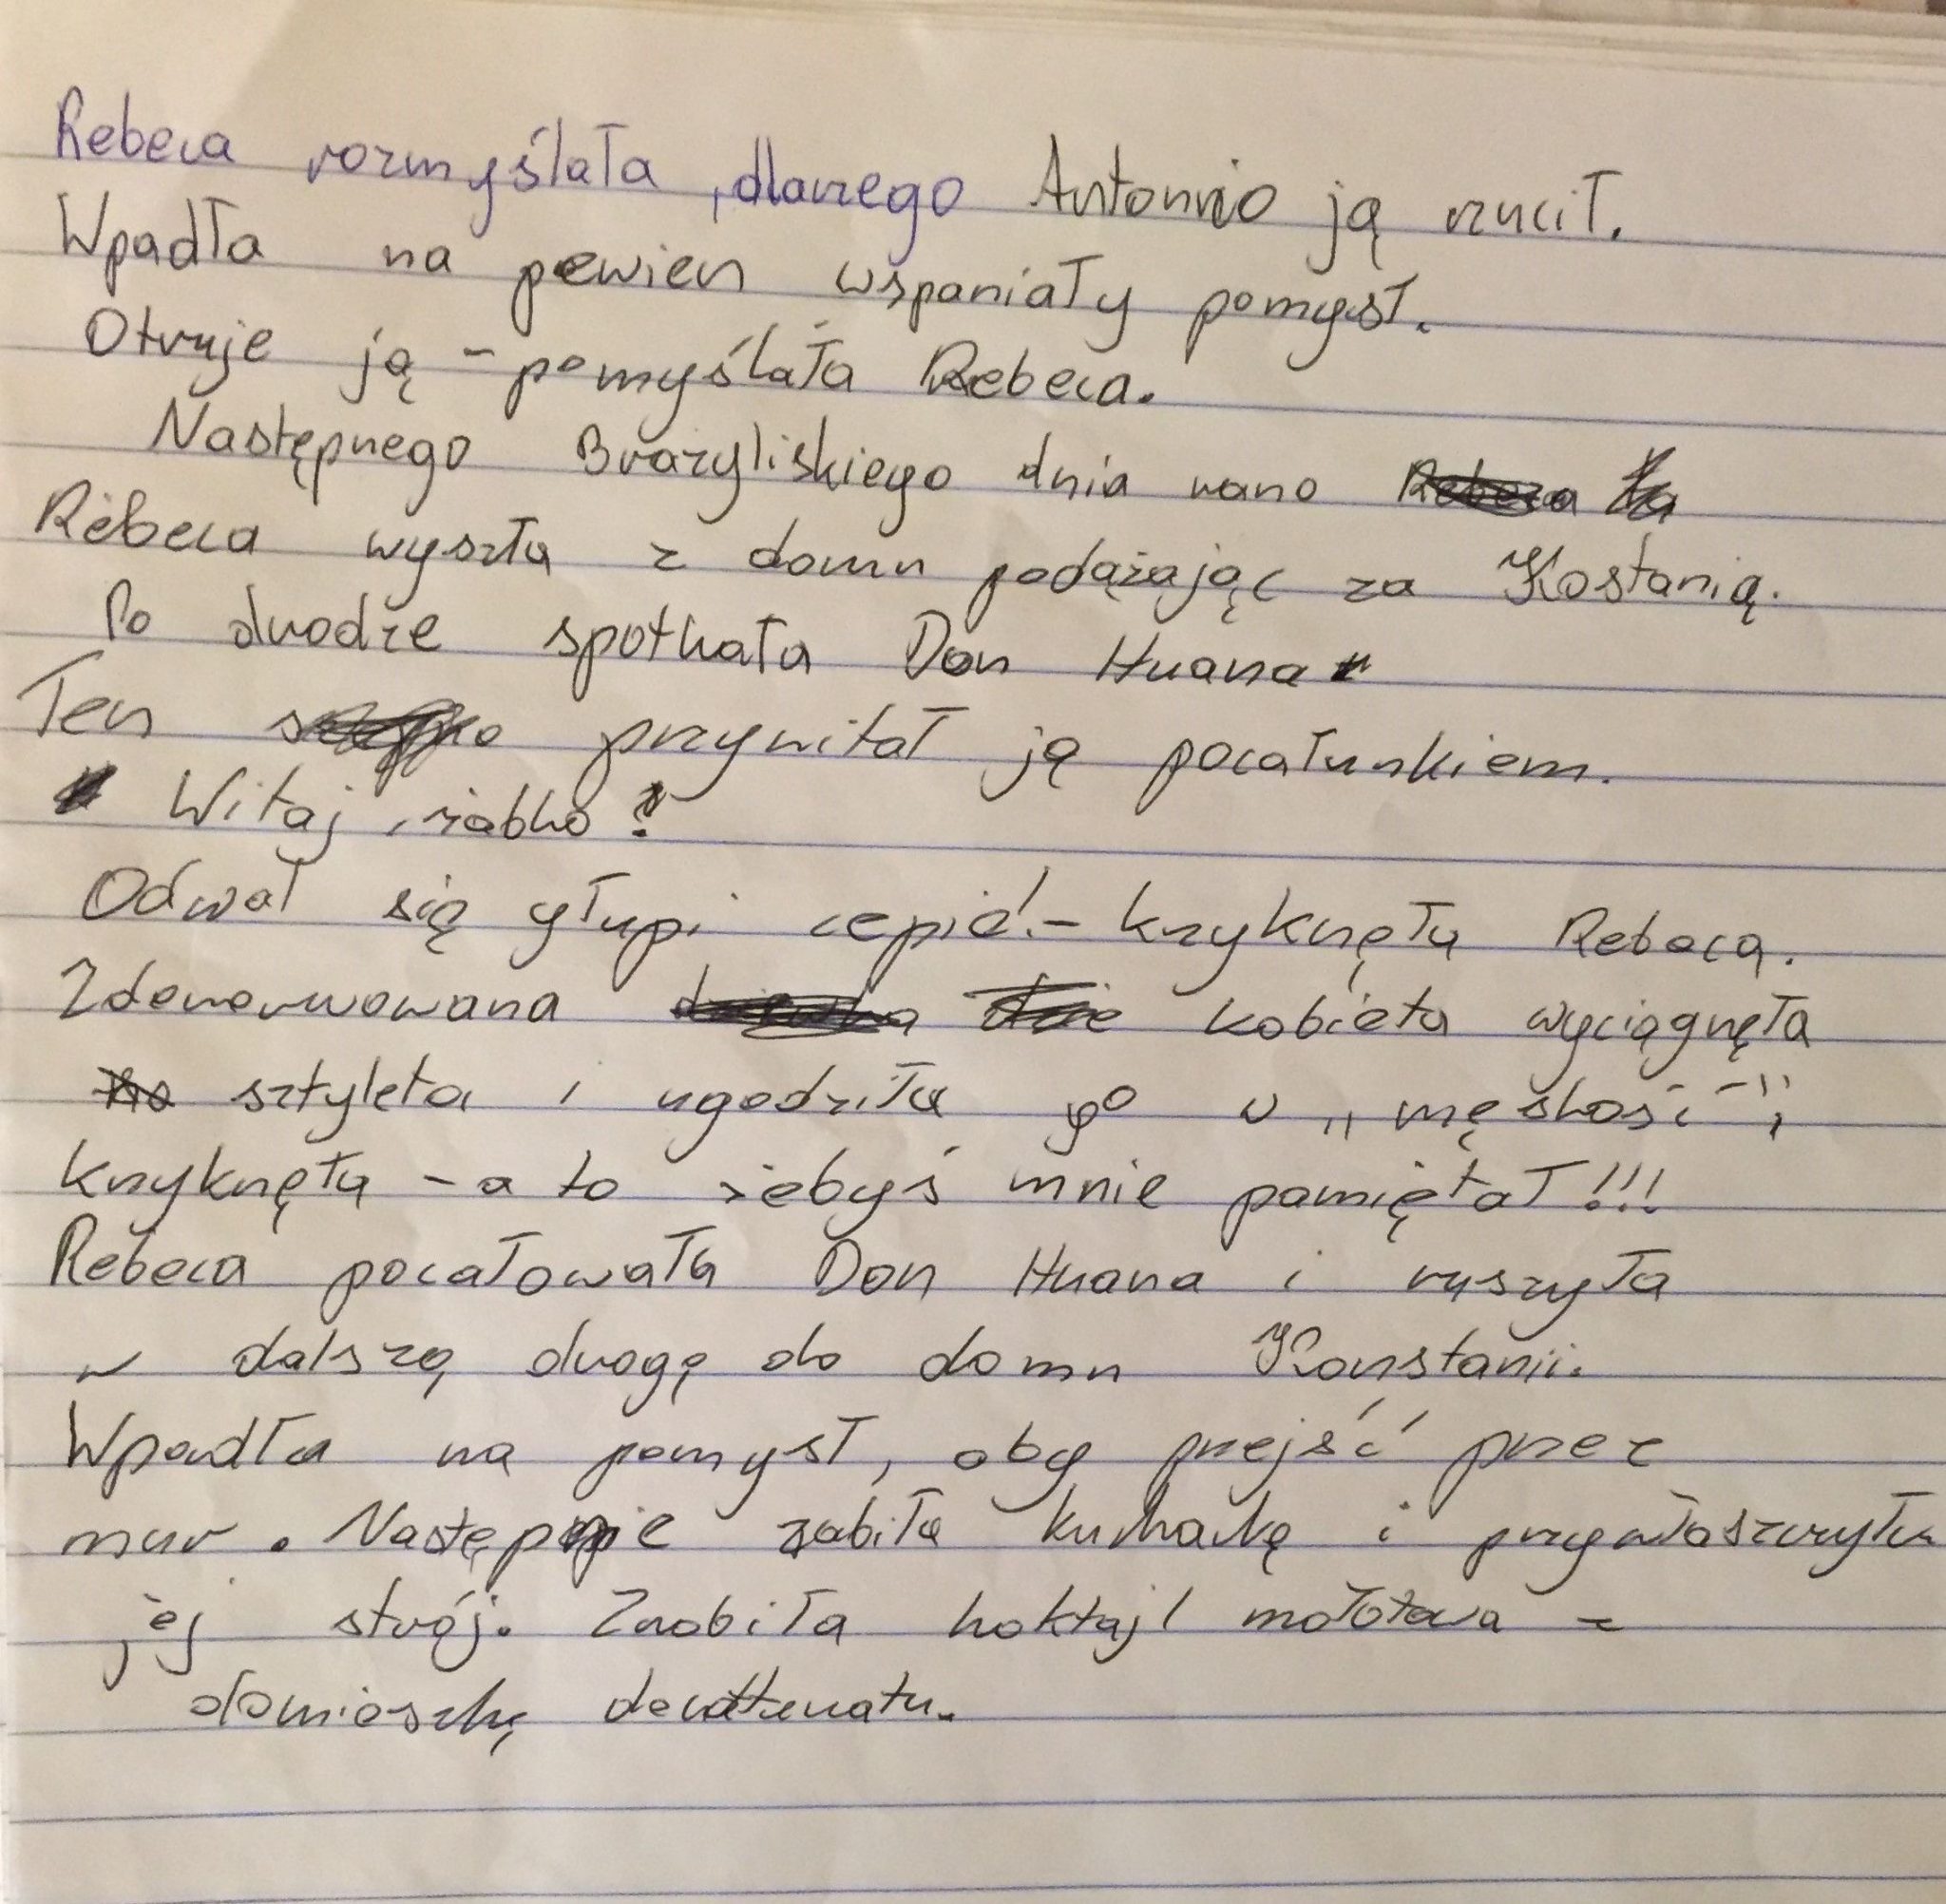 Rebeca rozmyślała, dlaczego Antonio ją rzucił.
Wpadła na pewien wspaniały pomysł.
Otruje ją - pomyślała Rebeca.
Następnego Brazyliskiego dnia rano
Rebeca wyszła z domu podążając za Kostanią.
Po drodze spotkała Don Huana
Ten przywitał ją pocałunkiem.
Witaj, żabko!
Odwal się głupi cepie! - krzyknęła Rebeca.
Zdenerwowana kobieta wyciągnęła
sztyleta i ugodziła go w „męskość";
krzyknęła - a to żebyś mnie pamiętał!!!
Rebeca pocałowała Don Huana i ruszyła
w dalszą drogę do domu Konstanii.
Wpadła na pomysł, aby przejść przez
mur. Następnie zabiła kucharkę i przywłaszczyła
jej strój. Zrobiła koktajl mołotowa z
domieszką denaturatu.